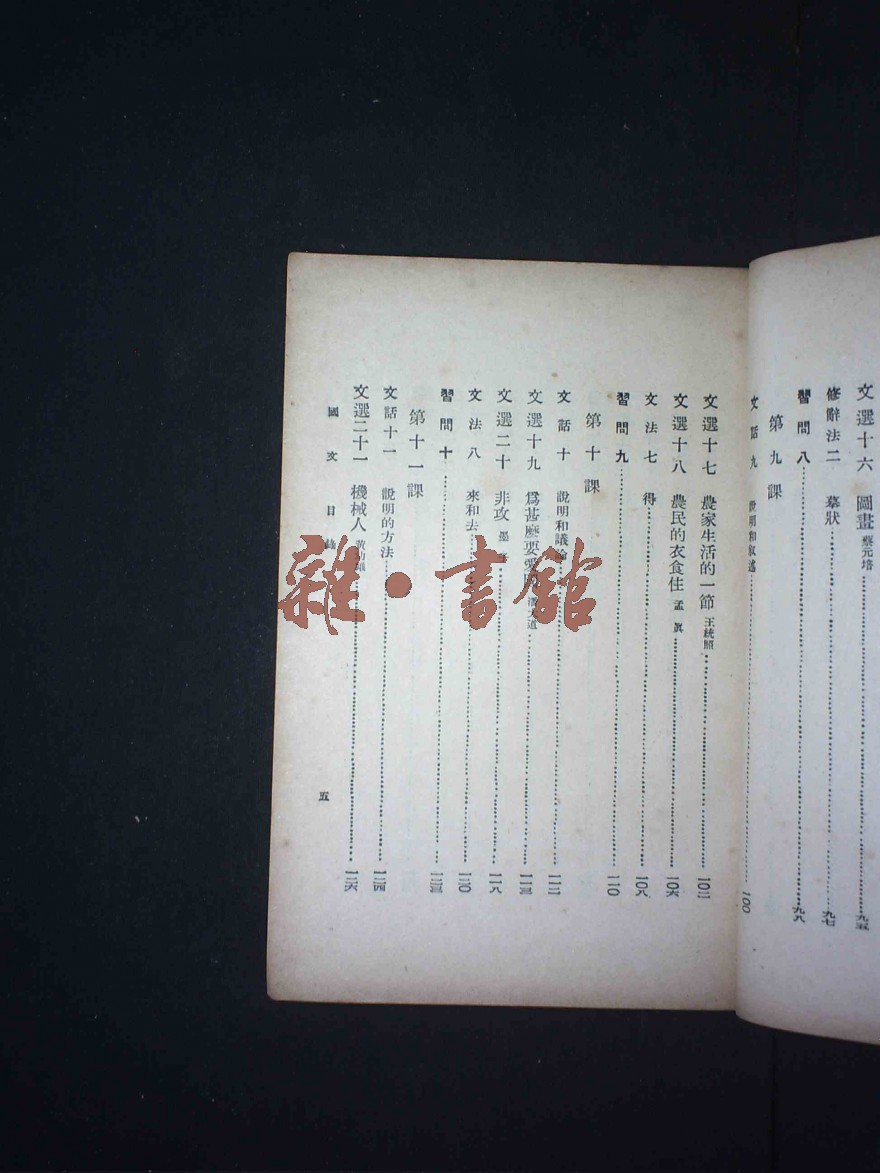 文選十六 圖畫 蔡元培 九五
修辭法二 摹狀 九七
習問八 九八
第九課
文話九 說明和敍述 一〇〇
文選十七 農家生活的一節 王統照 一〇二
文選十八 農民的衣食住 孟眞 一〇六
文法七 得 一〇八
習問九 一一〇
第十課
文話十 說明和議論 一一二
文選十九 爲甚麽要愛 道 一一三
文選二十 非攻 墨子 一一八
文法八 來和去 一二〇
習問十 一二三
第十一課
文話十一 說明的方法 一二四
文選二十一 機械人 黃幼雄 一二六
國文 目錄
五
雜·書館